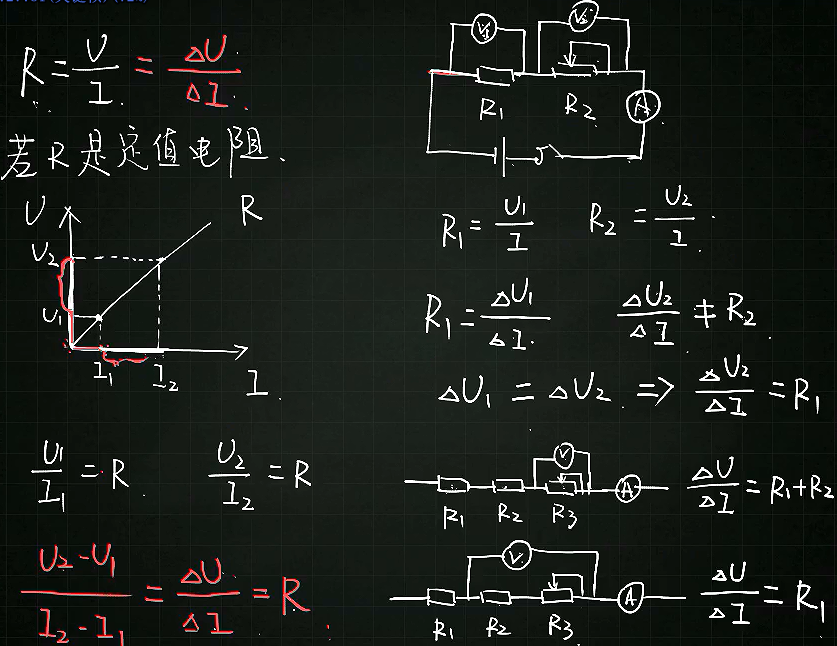 R = U/I = ΔU/ΔI
若R是定值电阻.
U
R
U₂
U₁
I₁
I₂
I
U₁/I₁ = R
U₂/I₂ = R
(U₂-U₁)/(I₂-I₁) = ΔU/ΔI = R
V₁
V₂
R₁
R₂
A
R₁ = U₁/I
R₂ = U₂/I
R₁ = ΔU₁/ΔI
ΔU₂/ΔI ≠ R₂
ΔU₁ = ΔU₂ => ΔU₂/ΔI = R₁
V
A
R₁
R₂
R₃
ΔU/ΔI = R₁+R₂
V
A
R₁
R₂
R₃
ΔU/ΔI = R₁